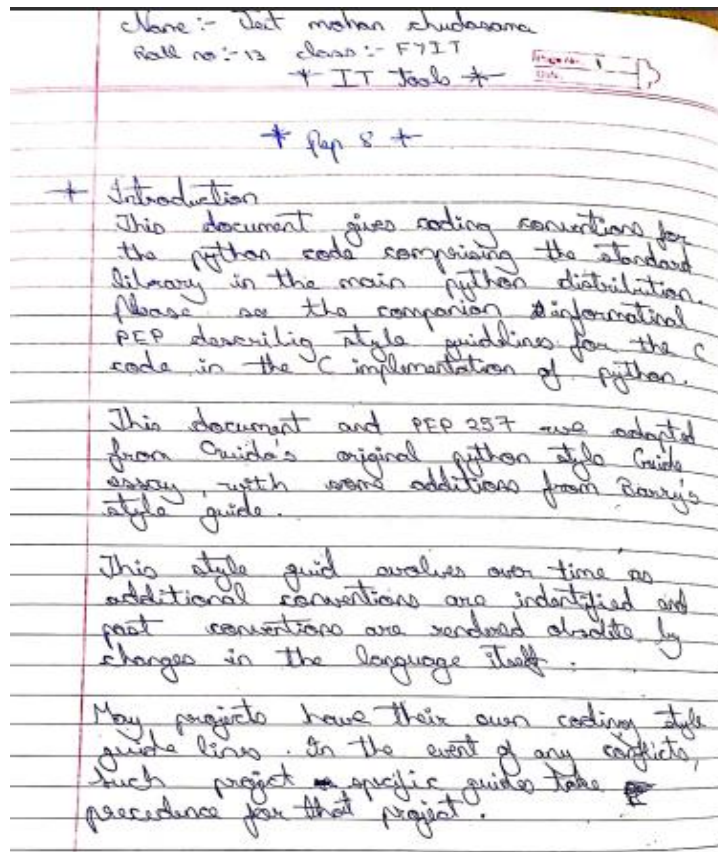 Name :- Jeet mohan chudasama
Roll no :- 13 class :- FYIT
* IT Tools *
* Pep 8 *
* Introduction
This document gives coding conventions for
the python code comprising the standard
library in the main python distribution.
Please see the companion informational
PEP describig style guidlines for the C
code in the C implementation of python.
This document and PEP 257 we adapted
from Guido's original python style Guide
essay, with some additions from Barry's
style guide.
This style guid evolves over time as
additional conventions are indentified and
past conventions are rendered obsolete by
changes in the language itself.
May projects have their own coding style
guide lines. In the event of any conflicts,
such project specific guides take
precedence for that project.